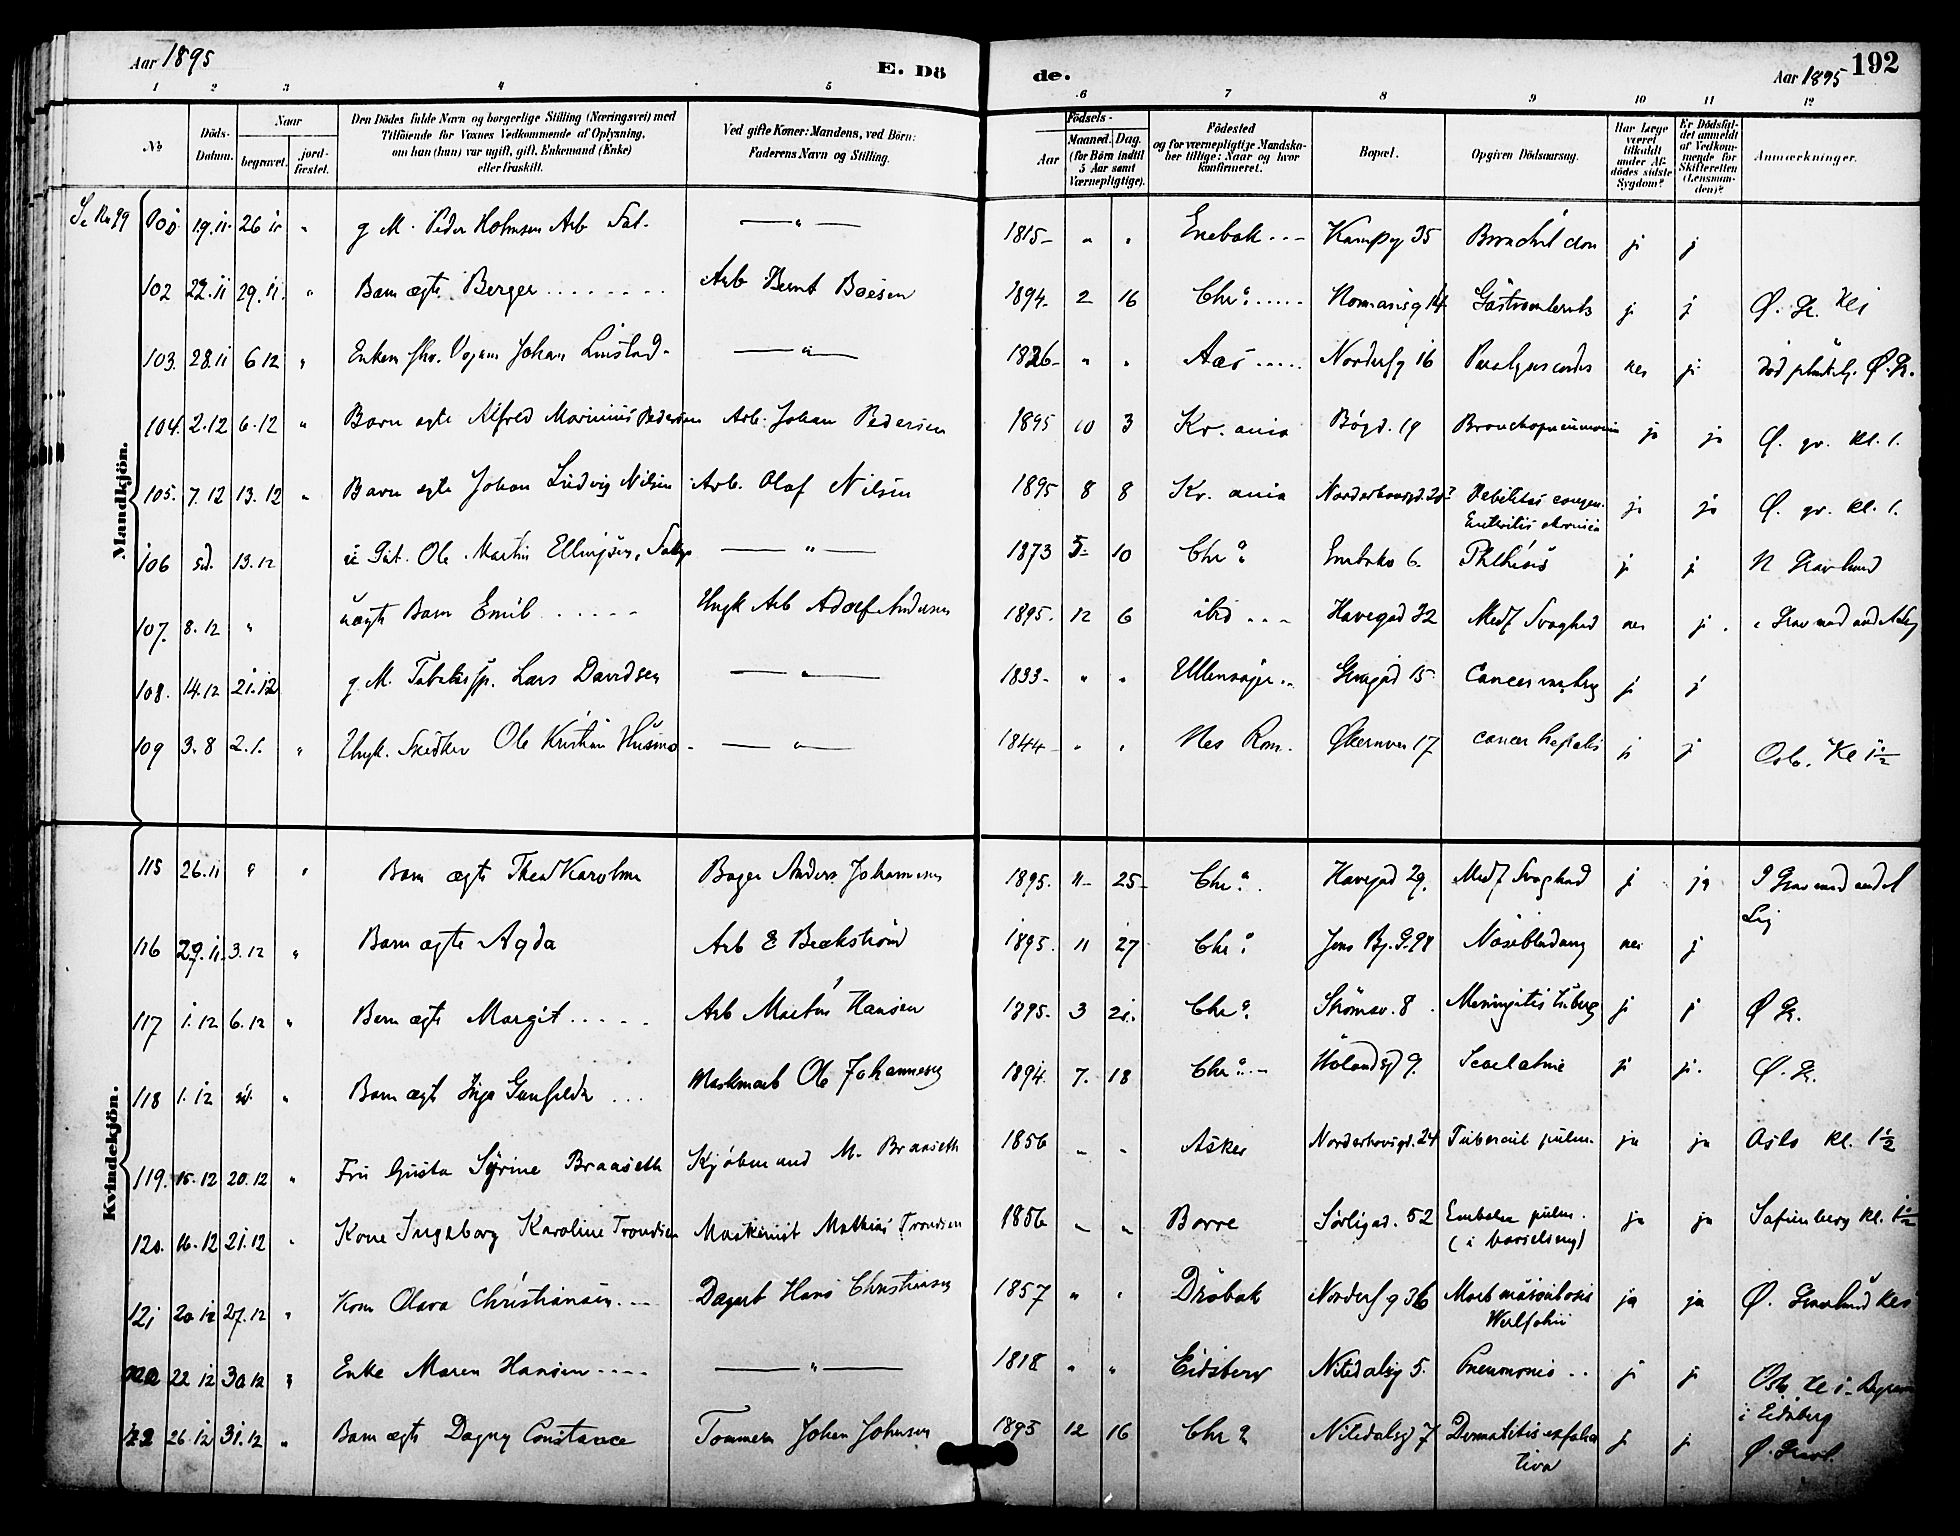 Aar 1895
E. Dö
de.
Aar 1895 192
1 2 3 4 5 6 7 8 9 10 11 12
No
Döds-Datum.
Naar
begravet.
jord-fæstet.
Den Dödes fulde Navn og borgerlige Stilling (Næringsvei) med
Tilföiende for Voxnes Vedkommende af Oplysning,
om han (hun) var ugift, gift, Enkemand (Enke)
eller fraskilt.
Ved gifte Koner: Mandens, ved Börn:
Faderens Navn og Stilling.
Födsels-
Aar
Maaned. Dag.
(for Børn indtil
5 Aar samt
Værnepligtige).
Födested
og for værnepligtige Mandska-
ber tillige: Naar og hvor
konfirmeret.
Bopæl.
Opgiven Dödsaarsag.
Har Læge
været
tilkaldt
under Af-
dödes sidste
Sygdom?
Er Dödsfal-
det anmeldt
af Vedkom-
mende for
Skifteretten
(Lensman-
den)?
Anmærkninger.
Mandkjön.
Se No 99 19.11 26 11 " g M. Peder Arb " 1815 " " Enebak Kampg 35 j j
102 22.11 29.11 " Barn ægte Berger Arb Bernt Boesen 1894 2 16 Chr.a 14 j j Ø. Gr. Kl 1
103. 28.11 6 12 " Enkem fhv. Johan Linstad " 1826 " " Aas Norderhg 16 Paralysis cordis nei j Ø. Gr.
104. 2.12 6.12 " Barn egte Alfred Marinius Pedersen Arb. Johan Pedersen 1895 10 3 Kr.ania Bøgd. 19 Bronchopneumonia ja ja Ø. gr. kl. 1.
105. 7.12 13.12 " Barn egte Johan Ludvig Nilsen Arb. Olaf Nilsen 1895 8 8 Kr.ania Norderhovsgd. 20? Debilitas congen.
Enteritis chronica ja ja Ø. gr. kl. 1.
106 sd. 13.12 Ole Martin Ellingsen " 1873 5 10 Chr.a Enebakv 6. Phthisis j j N Gravlund
107. 8.12 " uægte Barn Emil Ungk Arb Adolf Andersen 1895. 12 6 ibid Havegad 32 Medf Svaghed nei j i Grav med andet Lig
108. 14.12 21.12 g M. Lars Davidsen " 1833 " " Ullensager 15 Cancer j j
109 3.8 2.1. " Ungk. Ole Kristian Husmo " 1844 " " Nes Rom. Økernvei 17 cancer hepatis j j Oslo. Kl 1½
Kvindekjön.
115 26.11 " " Barn ægte Thea Karoline Bager Anders Johannesen 1895. 11 25 Chr.a Havegad 29. Medf Svaghed j ja I Grav med andet
Lig
116 29.11. 3.12 " Barn ægte Agda Arb E Beckström 1895. 11 27 Chr.a Jens Bj. G. 98 Næseblødning nei j
117 1.12 6.12 " Barn ægte Margit Arb Martin Hansen 1895. 3 21. Chr.a Strømsv. 8 Meningitis tuberc j j Ø Gr.
118 1.12 sd. " Barn ægte Inga Gunhilda Maskinarb Ole Johannesen 1894. 7. 18 Chr.a Hølandsgd 9. Scarlatina j j. Ø. Gr.
119. 15.12 20.12 " Fru Gusta Syrine Braaseth Kjøbmand M. Braaseth 1856 " " Asker Norderhovsgd. 24 Tubercul pulm. ja ja Oslo kl. 1½
120. 16.12 21.12 " Kone Ingeborg Karoline Trondsen Maskinist Mathias Trondsen 1856 " " Borre Sørligad. 52 Embolia pulm.
(i barselseng) ja ja Sofienberg kl. 1½
121 20 12 27.12 " Kone Olava Christiansen Dagarb Hans Christiansen 1857 " " Drøbak Norderhg 36 Morb maculosus
Werlhofii ja ja Ø. Gravlund Kl 1
22 12 30 12 " Enke Maren Hansen " 1818 " " Eidsberg Nitedalsg 5. Pneumonia j j Oslo Kl 1
i Eidsberg
122 26.12 31.12 " Barn ægte Dagny Constance Tømmerm Johan Johnsen 1893 12 16 Chr.a Nitedalsgd 7 Dermatitis exfolia
tiva j j Ø. Gravl.